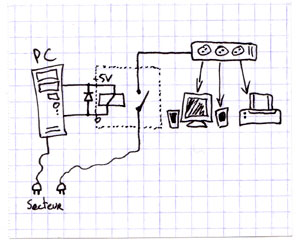 PC
+5V
Secteur